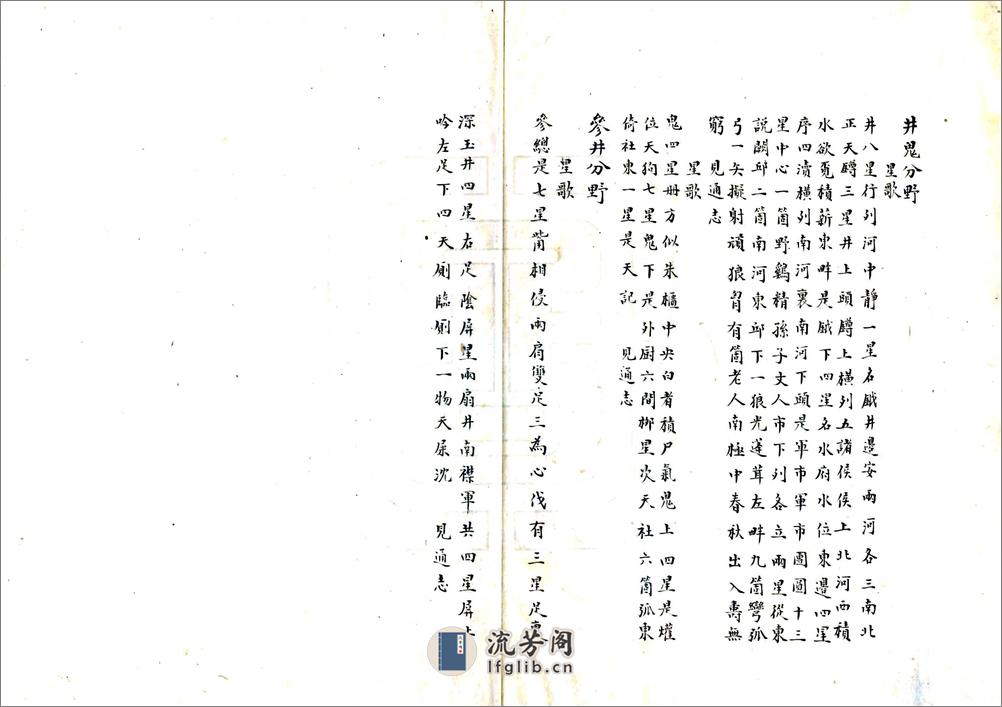 井鬼分野
星歌
井八星行列河中靜一星名鉞井邊安兩河各三南北
正天罇三星井上頭罇上橫列五諸侯侯上北河西積
水欲覓積薪東畔是鉞下四星名水府水位東邊四星
序四瀆橫列南河裏南河下頭是軍市軍市團圓十三
星中心一箇野鷄精孫子丈人市下列各立兩星從東
說闕邱二箇南河東邱下一狼光蓬茸左畔九箇彎弧
弓一矢擬射頑狼胷有箇老人南極中春秋出入壽無
窮　見通志
星歌
鬼四星册方似朱櫃中央白者積尸氣鬼上四星是爟
位天狗七星鬼下是外厨六間栁星次天社六箇弧東
倚社東一星是天記　見通志
參井分野
星歌
參總是七星觜相侵兩肩雙足三為心伐有三星足裏
深玉井四星右足陰屏星兩扇井南襟軍共四星屏上
吟左足下四天厠臨厠下一物天屎沈　見通志
流芳阁
lfglib.cn